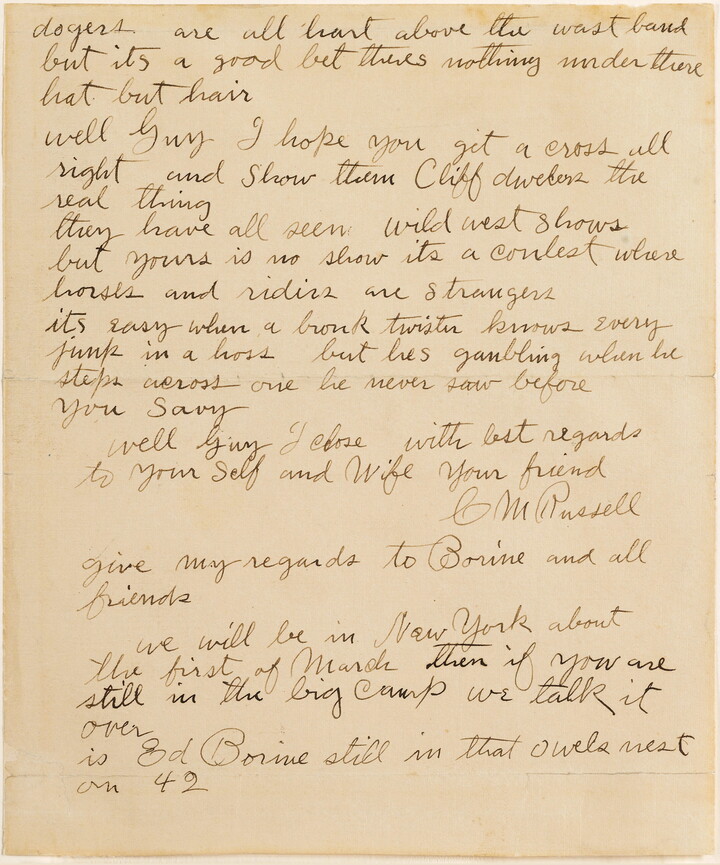 dogers are all hart above the wast band
but its a good bet theres nothing under there
hat but hair
well Guy I hope you get a cross all
right and show them Cliff dwelers the
real thing
they have all seen wild west shows
but yours is no show its a contest where
horses and riders are strangers
its easy when a bronk twister knows every
jump in a hoss but hes gambling when he
steps across one he never saw before
you Savy
well Guy I close with best regards
to your Self and Wife your friend
C M Russell
give my regards to Borine and all
friends
we will be in New York about
the first of March then if you are
still in the big Camp we talk it
over
is Ed Borine still in that owels nest
on 42